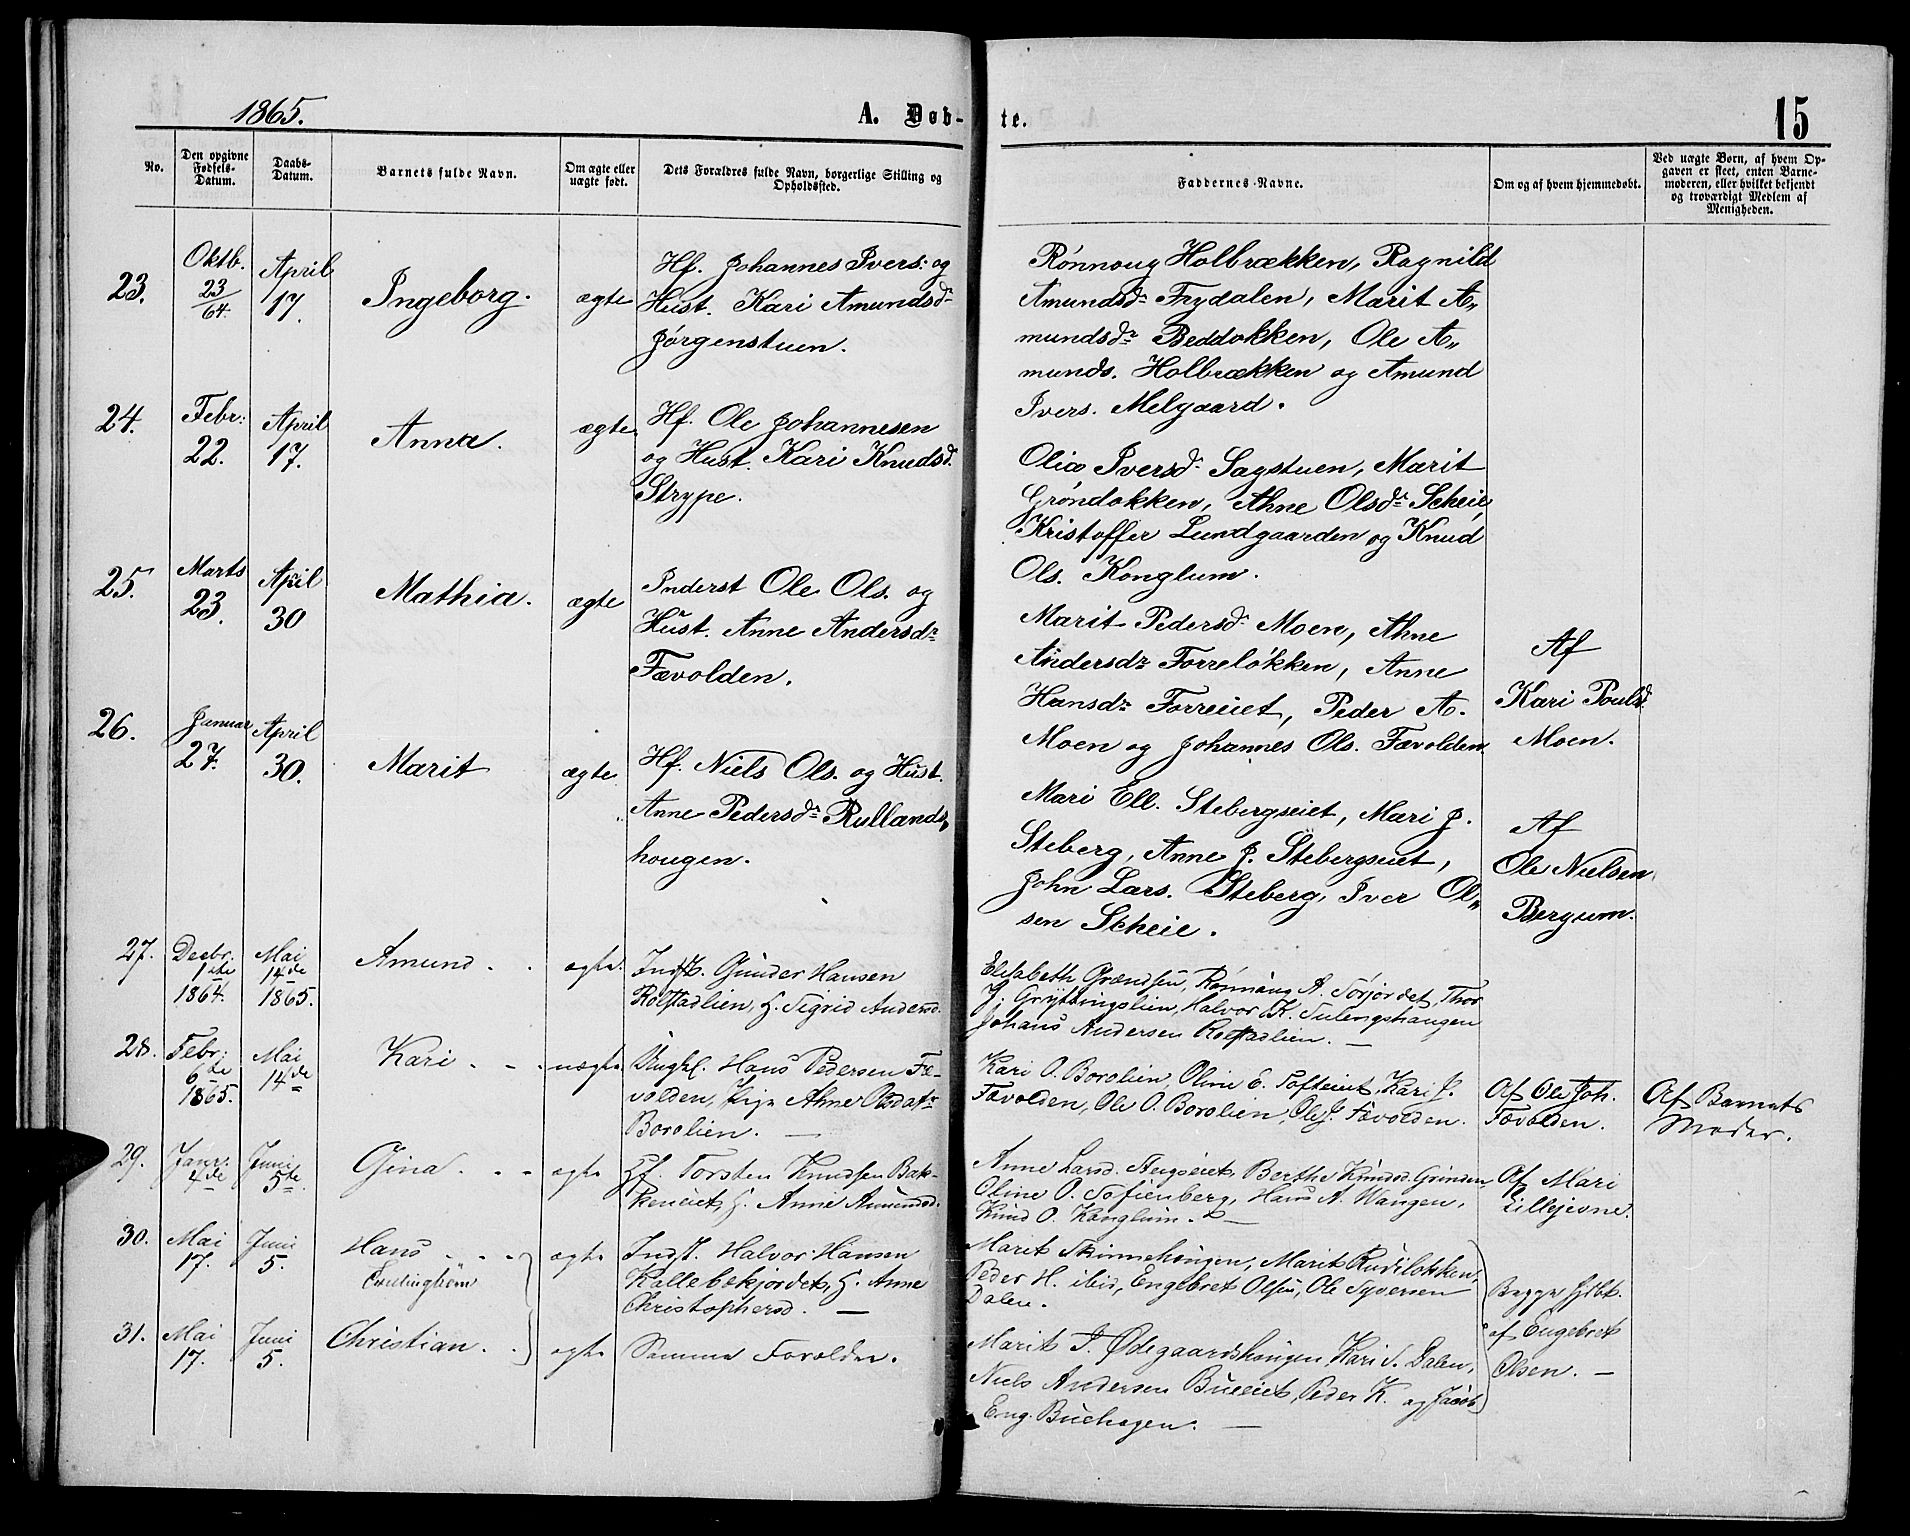 1865.
A. Døb-
te.
15
No.
Den opgivne
Fødsels-
Datum.
Daabs-
Datum.
Barnets fulde Navn.
Om ægte eller
uægte født.
Dets Forældres fulde Navn, borgerlige Stilling og
Opholdssted.
Faddernes Navne.
Om og af hvem hjemmedøbt.
Ved uægte Børn, af hvem Op-
gaven er skeet, enten Barne-
moderen, eller hvilket bekjendt
og troværdigt Medlem af
Menigheden.
23.
Oktb.
23/64.
April
17.
Ingeborg.
ægte
Hf. Johannes Ivers: og
Hust. Kari Amundsdr
Jørgenstuen.
Rønnoug Holbrækken, Ragnild
Amundsdr Frydalen, Marit A„
mundsdr Beddokken, Ole A„
munds. Holbrækken og Amund
Ivers. Melgaard.
24.
Febr:
22.
April
17.
Anna.
ægte
Hf. Ole Johannesen
og Hust. Kari Knudsd.
Strype.
Olia Iversdr Sagstuen, Marit
Grøndokken, Ahne Olsdr Scheie,
Kristoffer Lundgaarden og Knud
Ols. Konglum.
25.
Marts
23.
April
30
Mathia.
ægte
Inderst Ole Ols. og
Hust. Anne Andersdr
Fævolden.
Marit Pedersdr Moen, Ahne
Andersdr Forreløkken, Anne
Hansdr Forreiet, Peder A.
Moen og Johannes Ols. Fævolden.
Af
Kari Pouls.
Moen.
26.
Januar
27.
April
30.
Marit
ægte
Hf. Niels Ols. og Hust.
Anne Pedersdr Rullands„
hougen.
Mari Ell. Stebergseiet, Mari J.
Steberg, Anne J. Stebergseiet,
John Lars. Steberg, Iver Ol„
sen Scheie.
Af
Ole Nielsen
Bergum.
27.
Decbr.
1ste
1864.
Mai
14de
1865.
Amund
ægte.
Indst. Gunder Hansen
Rolstadlien, H. Sigrid Andersd.
Elisabeth Grændsen, Rønnaug A. Sørjordet, Thor
J. Gryttingslien, Halvor K. Sulengshaugen
Johans Andersen Rolstadlien. —
28.
Febr:
6te
1865.
Mai
14de
Kari
uægte
Ungkl. Hans Pedersen Fæ-
volden, Pige Ahne
Borolien. —
Kari O. Borolien, Oline E. Tofteiet, Kari J.
Fævolden, Ole O. Borolien, Ole J. Fævolden.
Af Ole Joh.
Fævolden.
Af Barnets
Moder.
29.
Janr.
4de
Juni
5te.
Gina
ægte
Hf. Torsten Knudsen Bak-
keneiet, H. Anne Amundsd.
Anne Larsd. Berthe Knudsd. Grinden,
Oline O. Sofienberg, Hans A. Wangen,
Knud O. Konglum. —
Af Mari
Lillejevne.
30.
Mai
17.
Juni
5.
Hans
ægte
Indst. Halvor Hansen
Kallebekjordet, H. Anne
Christophersd. —
Marit Skinnehaugen, Marit Rudiløkken,
Peder H. ibid, Engebret Olsen, Ole Syversen
Dalen.
Begge hjbt.
af Engebret
Olsen. —
31.
Mai
17.
Juni
5.
Christian
ægte
Samme Forældre.
Marit J. Ødegaardshaugen, Kari S. Dalen,
Niels Andersen Bueiet, Peder K. og Jacob
Eng. Buehagen. —